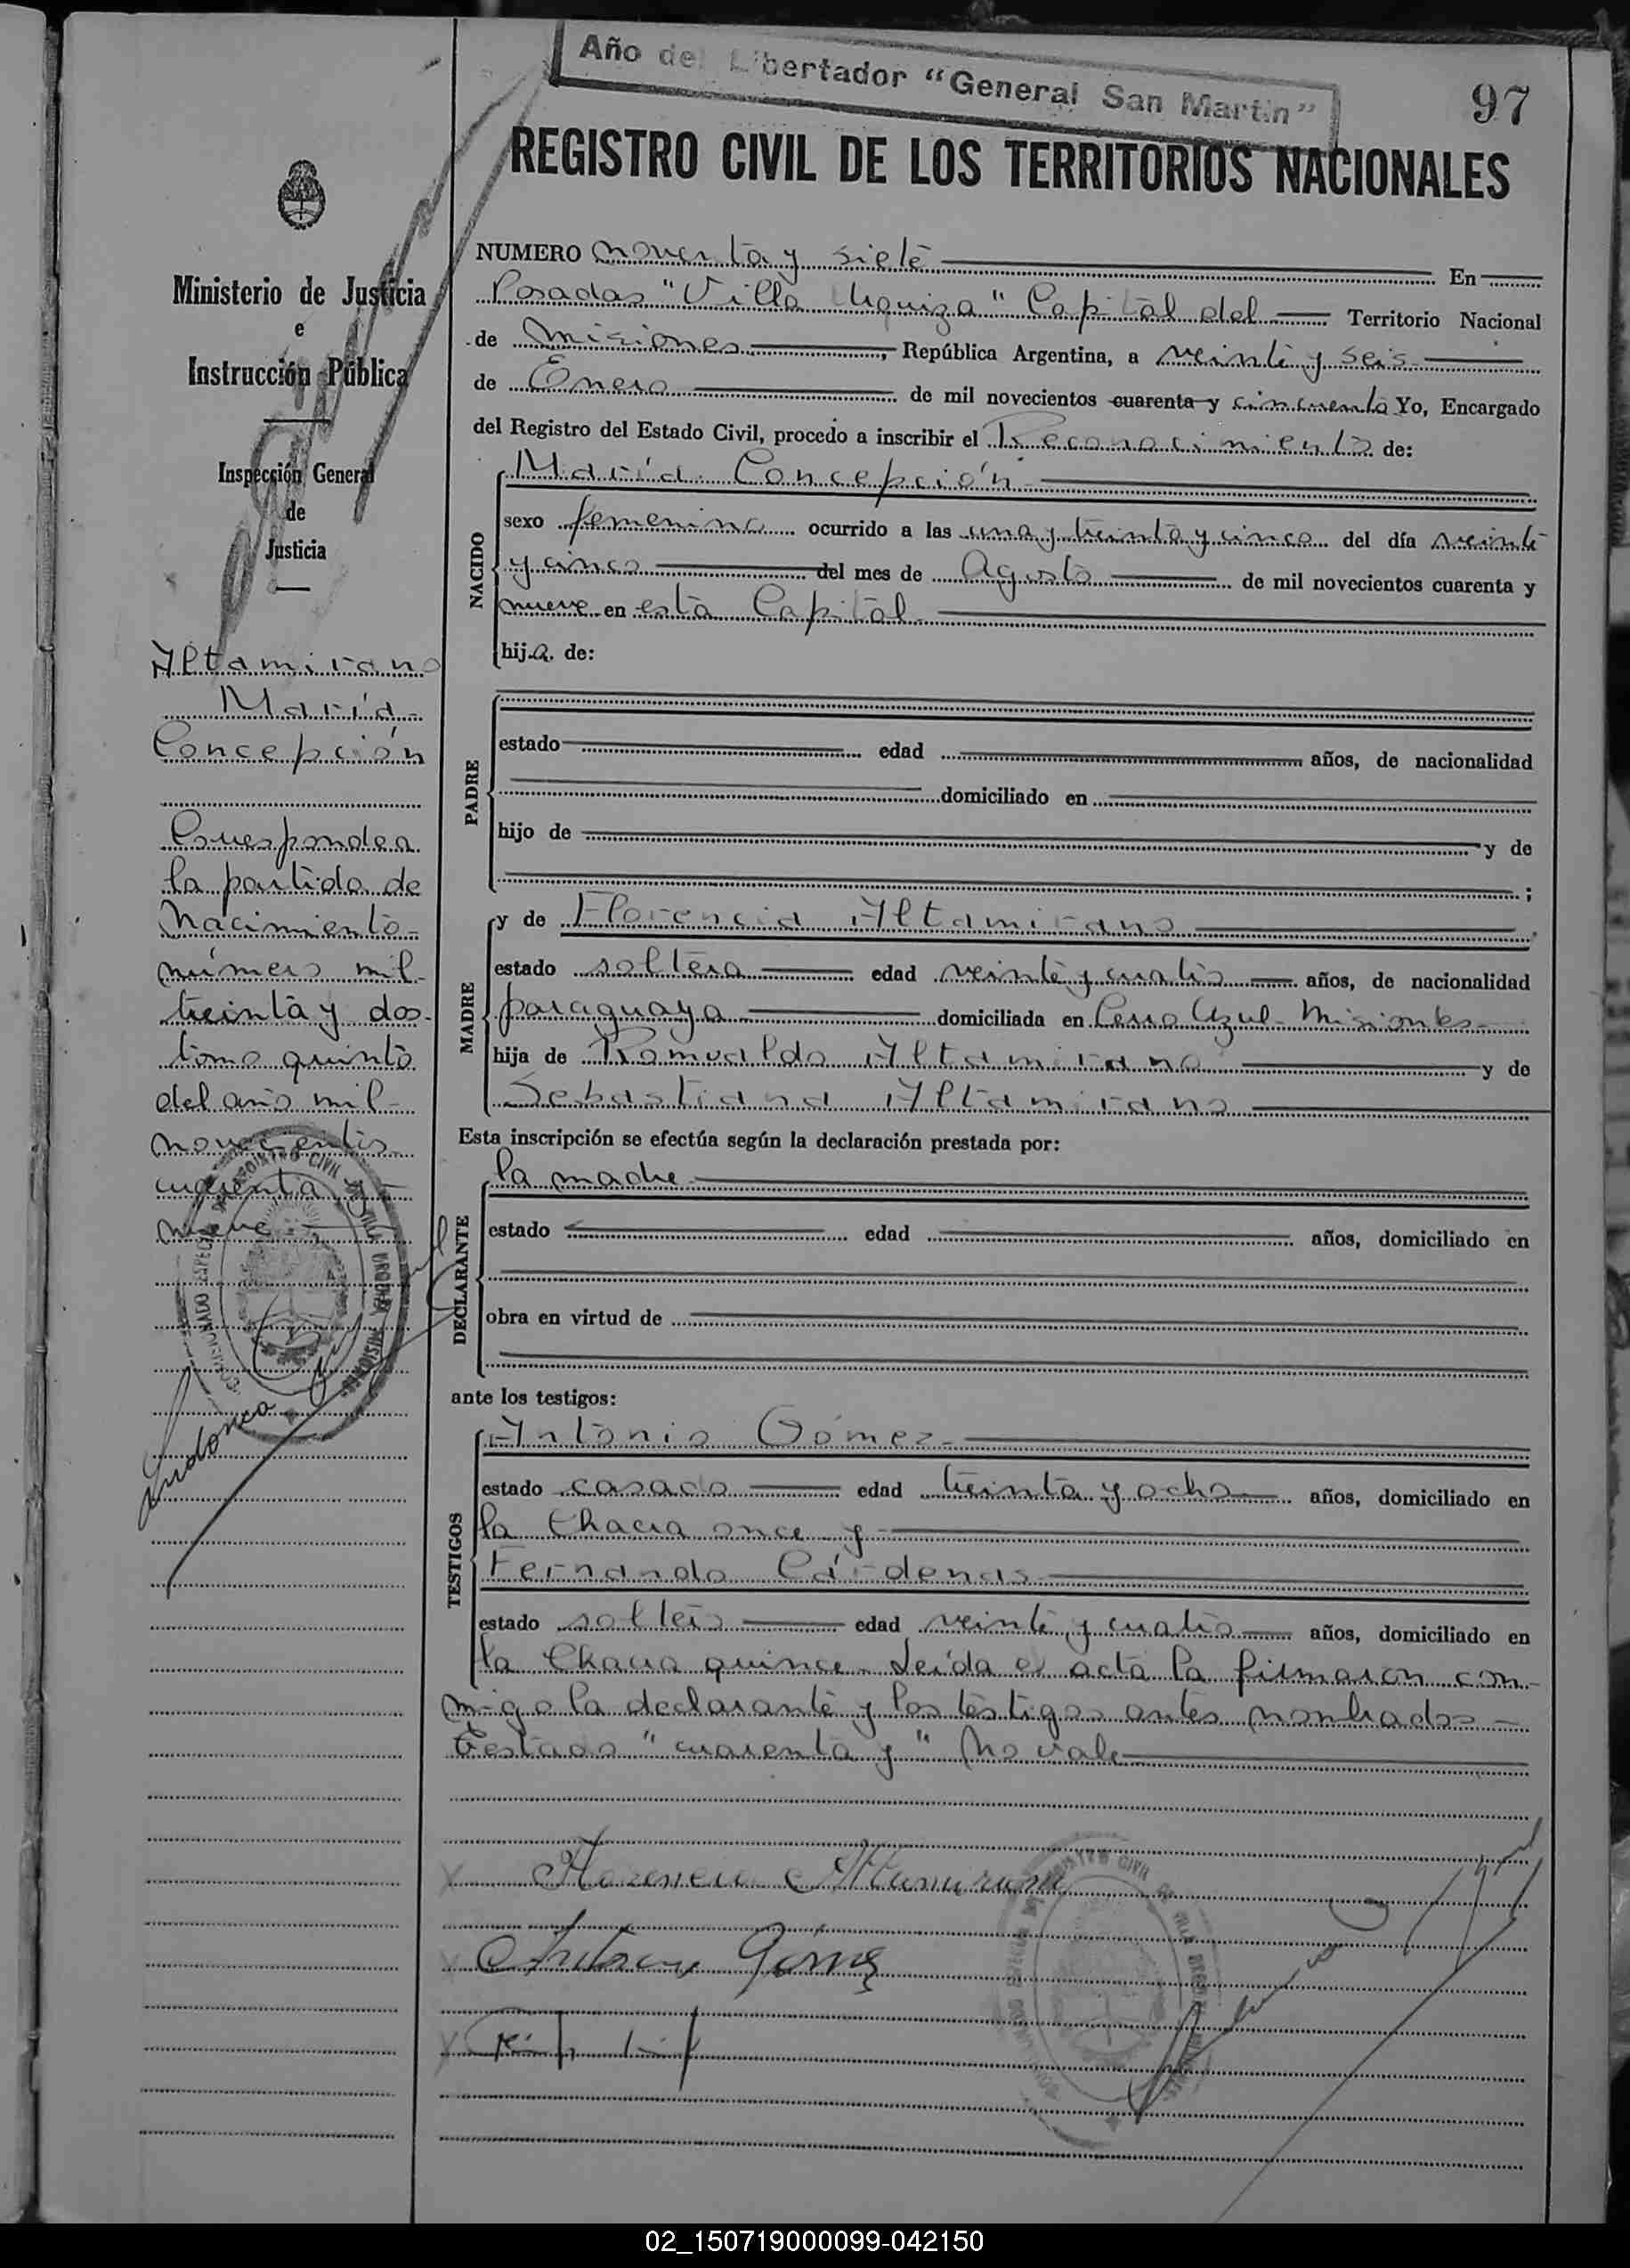 Año del Libertador "General San Martín"
97
REGISTRO CIVIL DE LOS TERRITORIOS NACIONALES
Ministerio de Justicia
e
Instrucción Pública
Inspección General
de
Justicia
Altamirano
María
Concepción
Corresponde a
la partida de
Nacimiento
número mil
treinta y dos
tomo quinto
del año mil
novecientos
cuarenta y
nueve
NUMERO noventa y siete En
Posadas "Villa Urquiza" Capital del Territorio Nacional
de Misiones, República Argentina, a veinte y seis
de Enero de mil novecientos cuarenta y cincuenta Yo, Encargado
del Registro del Estado Civil, procedo a inscribir el Reconocimiento de:
NACIDO
María Concepción
sexo femenino ocurrido a las una y treinta y cinco del día veinte
y cinco del mes de Agosto de mil novecientos cuarenta y
nueve en esta Capital
hija de:
PADRE
estado edad años, de nacionalidad
domiciliado en
hijo de y de
;
MADRE
y de Florencia Altamirano
estado soltera edad veinte y cuatro años, de nacionalidad
paraguaya domiciliada en Cerro Azul - Misiones
hija de Romualdo Altamirano y de
Sebastiana Altamirano
Esta inscripción se efectúa según la declaración prestada por:
DECLARANTE
la madre
estado edad años, domiciliado en
obra en virtud de
ante los testigos:
TESTIGOS
Antonio Gómez
estado casado edad treinta y ocho años, domiciliado en
la Chacra once y
Fernando Cárdenas
estado soltero edad veinte y cuatro años, domiciliado en
la Chacra quince. Leída el acta la firmaron con-
migo la declarante y los testigos antes nombrados -
Testado "cuarenta y" No vale
Florencia Altamirano
Antonio Gómez
02_150719000099-042150